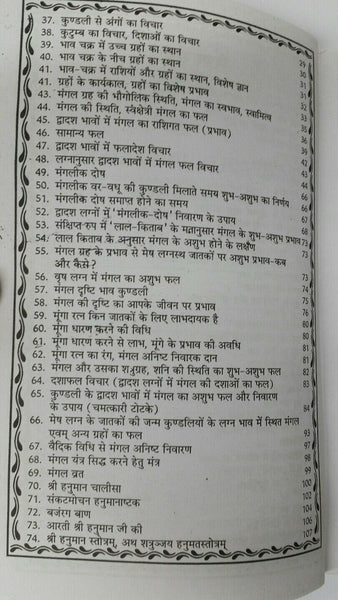 37. कुण्डली से अंगों का विचार
38. कुटुम्ब का विचार, दिशाओं का विचार
39. भाव चक्र में उच्च ग्रहों का स्थान 29
40. भाव चक्र के नीच ग्रहों का स्थान 31
41. भाव-चक्र में राशियाँ और ग्रहों का स्थान, विशेष ज्ञान 31
42. ग्रहों के कार्यकाल, ग्रहों का विशेष प्रभाव
43. मंगल ग्रह की भौगोलिक स्थिति, मंगल का स्वभाव, स्वामित्व
44. मंगल की स्थिति, स्वक्षेत्री मंगल का फल
45. द्वादश भावों में मंगल का राशिगत फल (प्रभाव)
46. सामान्य फल
47. द्वादश भावों में फलादेश विचार
48. लग्नानुसार द्वादश भावों में मंगल फल विचार
49. मंगलीक दोष
50. मंगलीक वर-वधू की कुण्डली मिलाते समय शुभ-अशुभ का निर्णय
51. मंगलीक दोष समाप्त होने का समय
52. द्वादश लग्नों में 'मंगलीक-दोष' निवारण के उपाय
53. संक्षिप्त-रुप में 'लाल-किताब' के मतानुसार मंगल के शुभ-अशुभ प्रभाव 73
54. लाल किताब के अनुसार मंगल के अशुभ होने के लक्षण
55. मंगल ग्रह के प्रभाव से मेष लग्नस्थ जातकों पर अशुभ प्रभाव-कब
और कैसे? 73
56. वृष लग्न में मंगल का अशुभ फल 74
57. मंगल दृष्टि भाव कुण्डली
58. मंगल की दृष्टि का आपके जीवन पर प्रभाव
59. मूंगा रत्न किन जातकों के लिए लाभदायक है
60. मूंगा धारण करने की विधि
61. मूंगा धारण करने से लाभ, मूंगे के प्रभाव की अवधि 81
62. मूंगा रत्न का रंग, मंगल अनिष्ट निवारक दान 81
63. मंगल और उसका शत्रुग्रह, शनि की स्थिति का शुभ-अशुभ फल 82
64. दशाफल विचार (द्वादश लग्नों में मंगल की दशाओं का फल) 83
65. कुण्डली के द्वादश भावों में मंगल का अशुभ फल और निवारण
के उपाय (चमत्कारी टोटके) 84
66. मेष लग्न के जातकों की जन्म कुण्डलियों के लग्न भाव में स्थित मंगल
एवम् अन्य ग्रहों का फल 93
67. वैदिक विधि से मंगल अनिष्ट निवारण 97
68. मंगल यंत्र सिद्ध करने हेतु मंत्र 98
69. मंगल व्रत 99
70. श्री हनुमान चालीसा 100
71. संकटमोचन हनुमानाष्टक 102
72. बजरंग बाण 104
73. आरती श्री हनुमान जी की 106
74. श्री हनुमान स्तोत्रम्, अथ शत्रुञ्जय हनुमतस्तोत्रम् 107